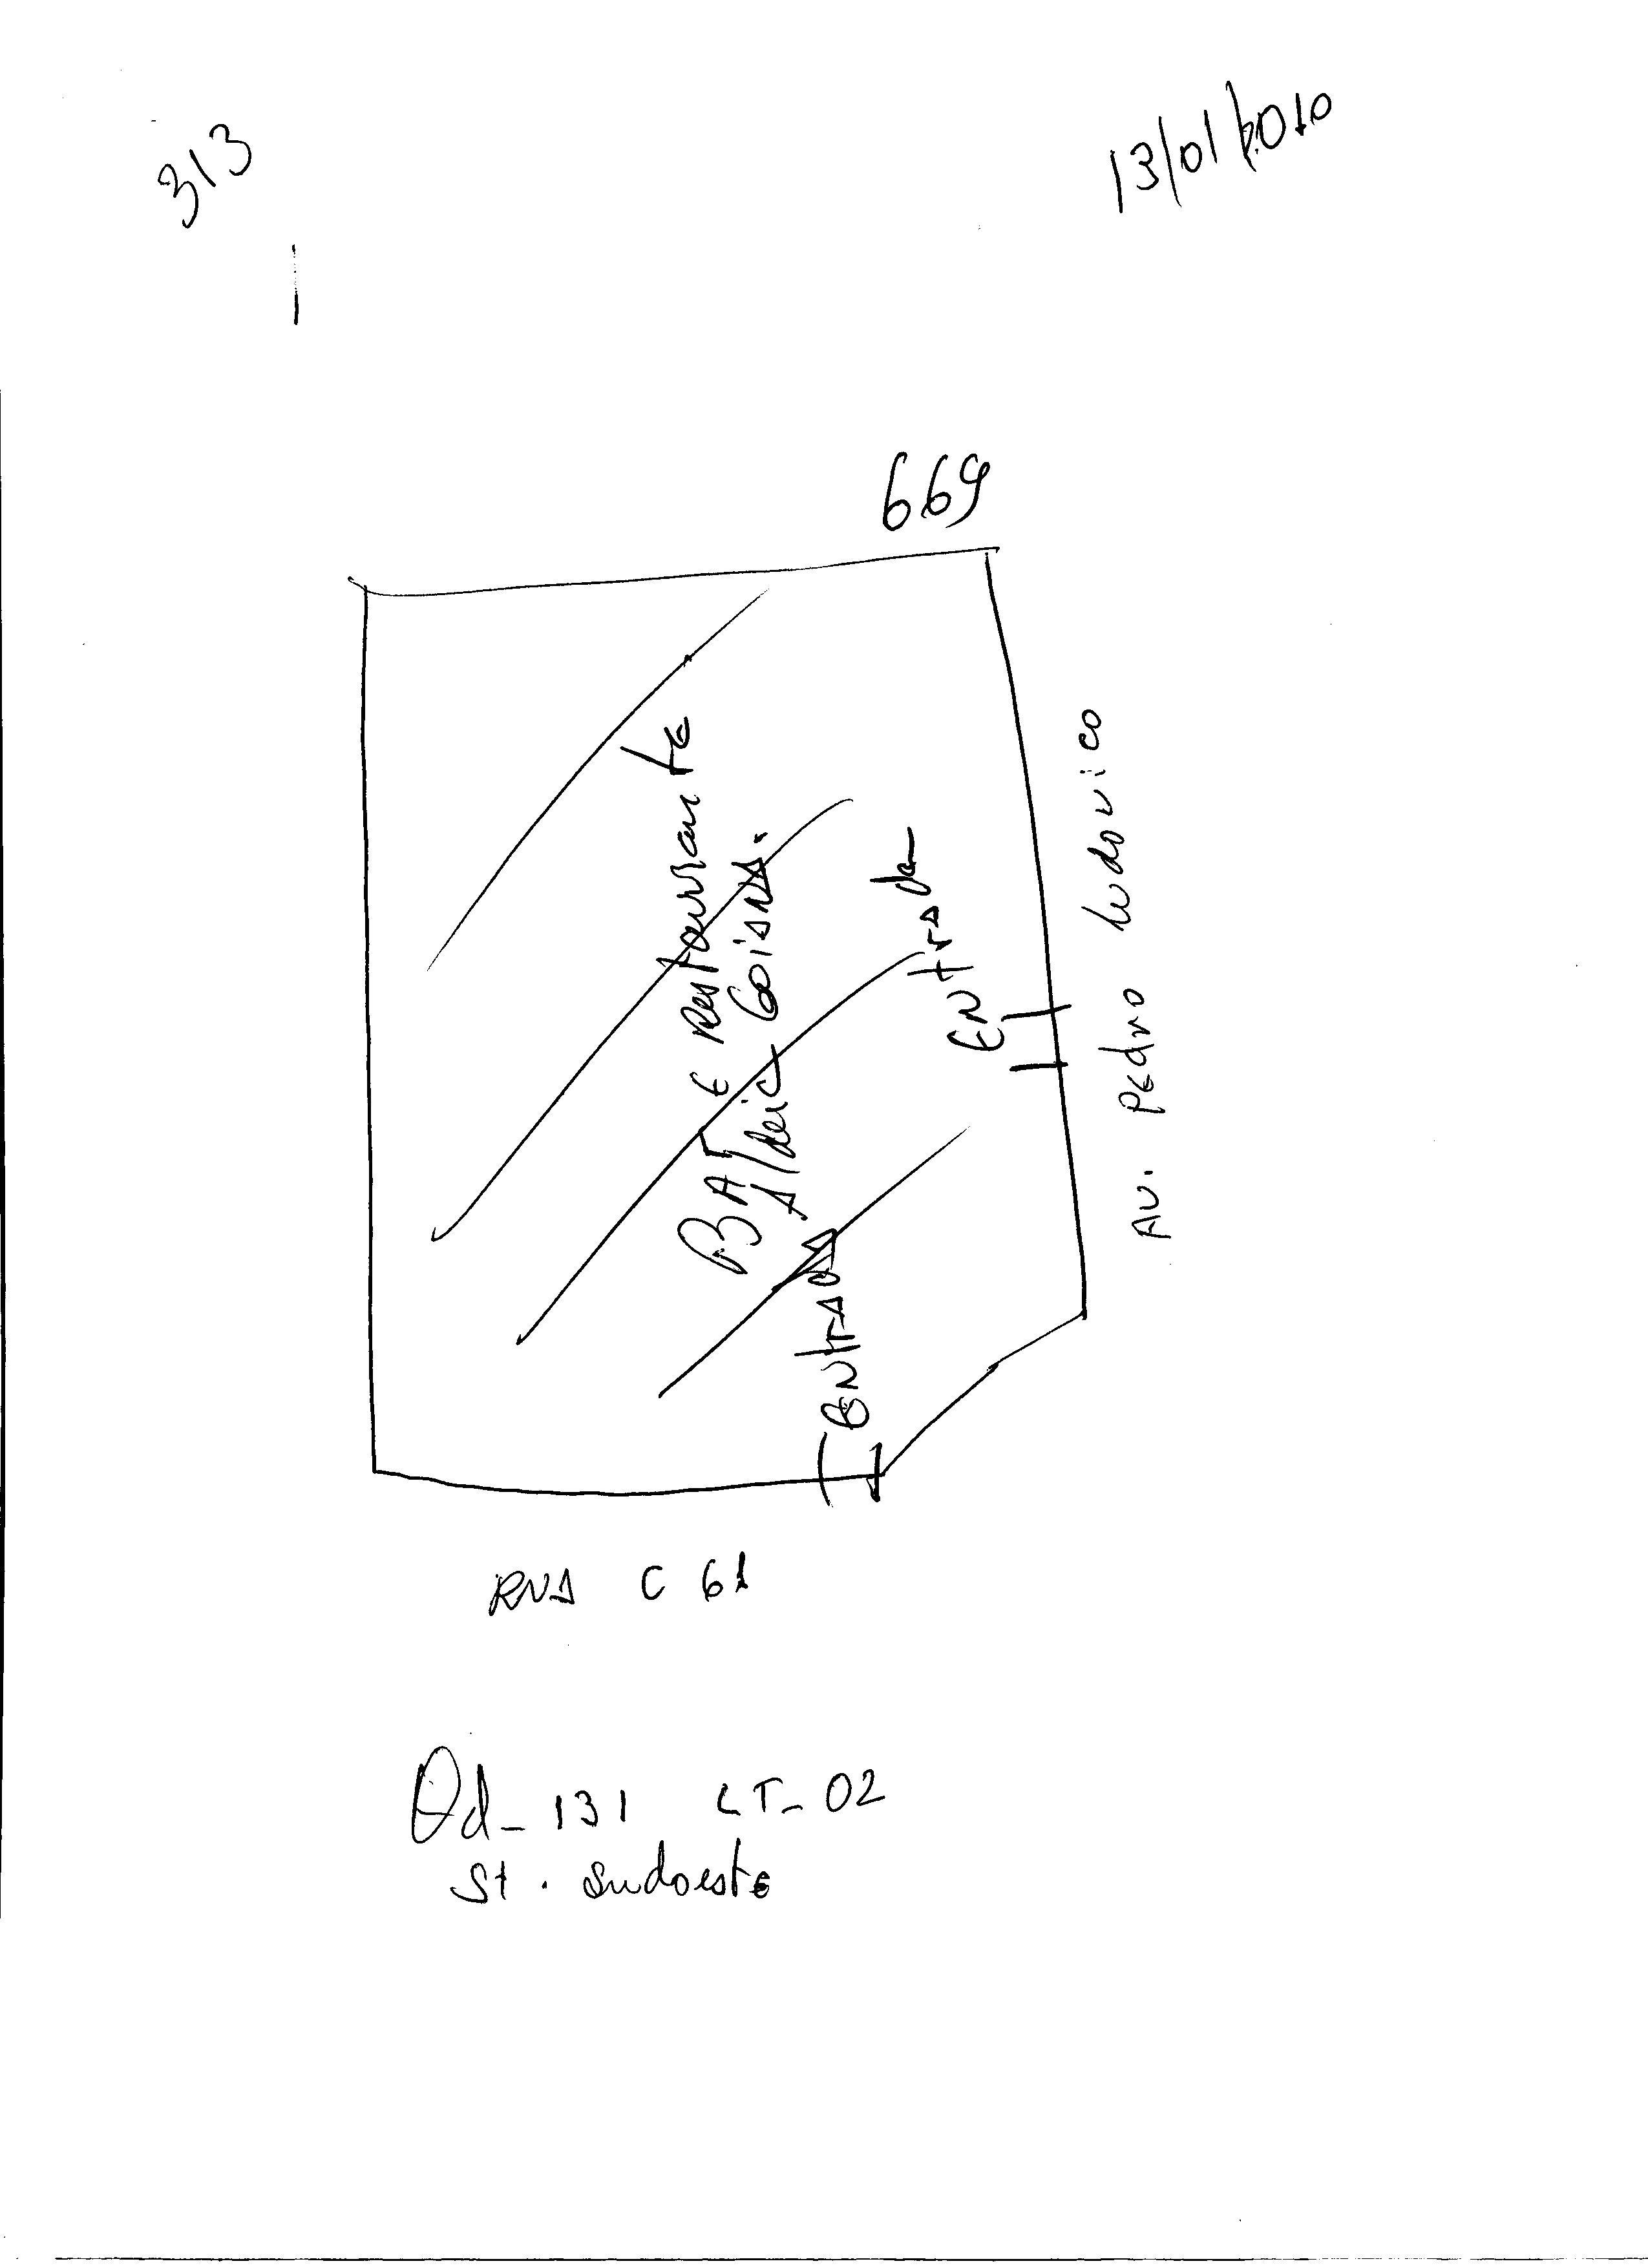 313
13/01/2010
669
BAR E Restaurante
Aldeia Goiana.
Entrada
Entrada
Av. Pedro Ludovico
RUA C 61
Qd_ 131 LT_ 02
St. Sudoeste